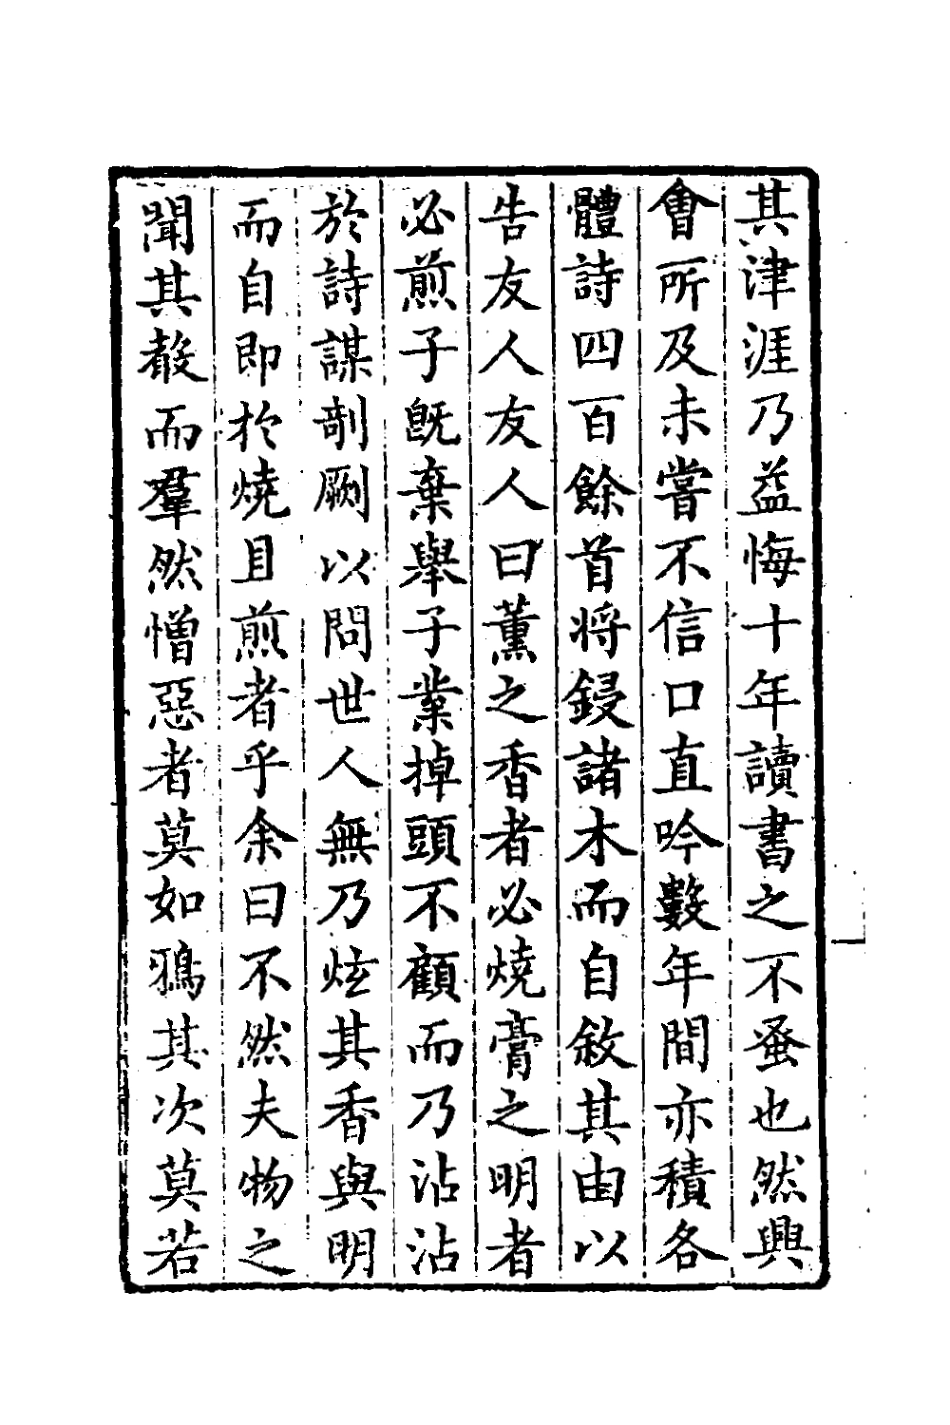 其津涯乃益悔十年讀書之不蚤也然興
會所及未嘗不信口直吟數年間亦積各
體詩四百餘首将鋟諸木而自敘其由以
告友人友人曰薰之香者必燒膏之明者
必煎子旣棄舉子業掉頭不顧而乃沾沾
於詩謀剞劂以問世人無乃炫其香與明
而自即於燒且煎者乎余曰不然夫物之
聞其聲而羣然憎惡者莫如鴉其次莫若